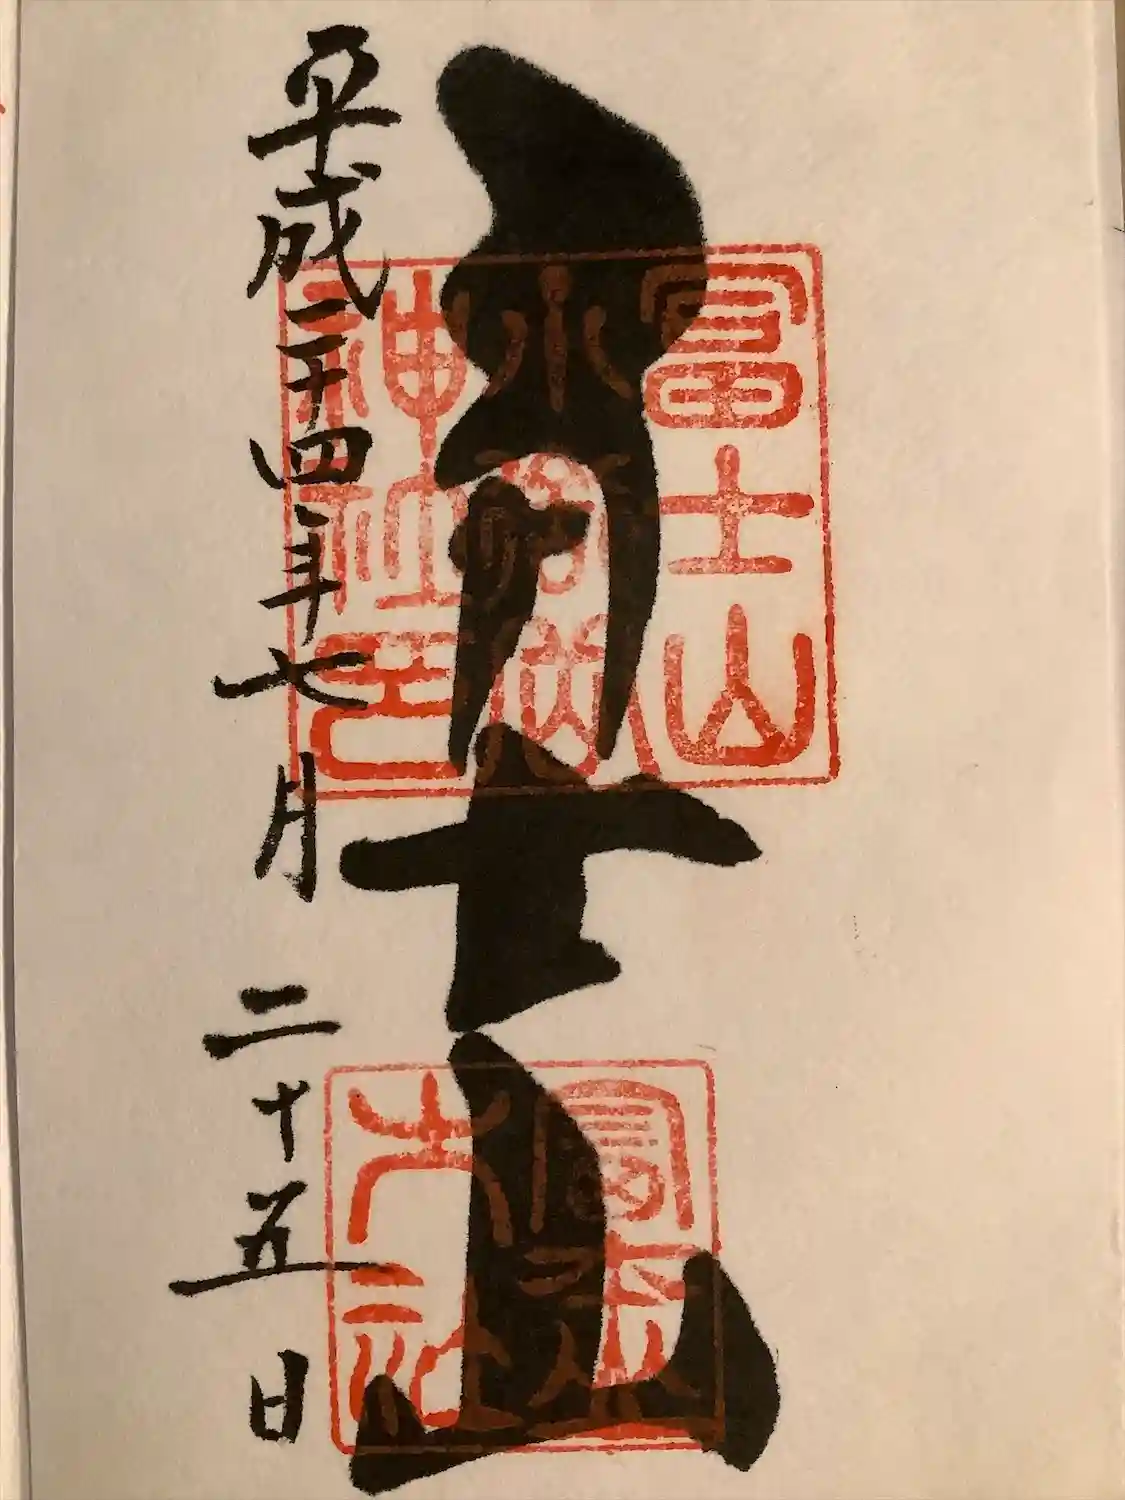 富士山
小御嶽
神社印
冨士山
平成二十四年七月二十五日